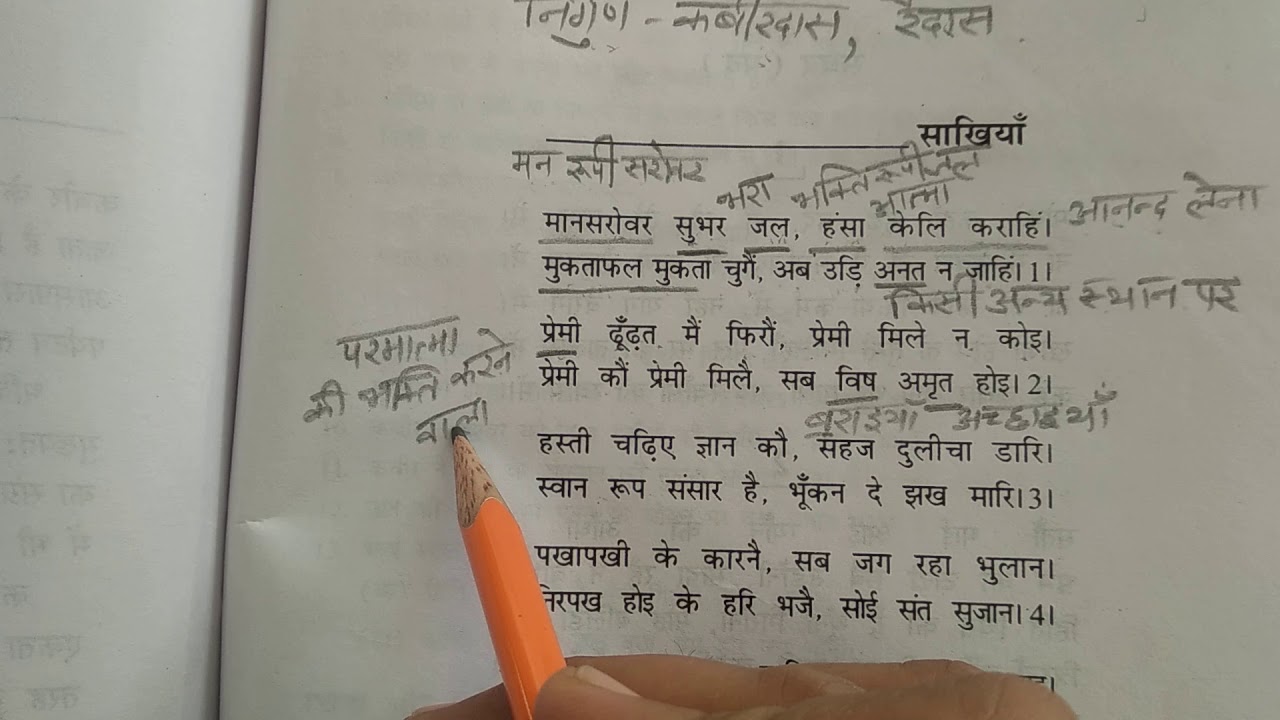 निर्गुण - कबीरदास, रैदास
साखियाँ
मन रूपी सरोवर
भरा भक्ति रूपी जल
आत्मा
मानसरोवर सुभर जल, हंसा केलि कराहिं। आनन्द लेना
मुकताफल मुकता चुगैं, अब उड़ि अनत न जाहिं।1।
किसी अन्य स्थान पर
प्रेमी ढूँढ़त मैं फिरौं, प्रेमी मिले न कोइ।
परमात्मा
की भक्ति करने
वाला
प्रेमी कौं प्रेमी मिलै, सब विष अमृत होइ।2।
बुराइयाँ अच्छाइयाँ
हस्ती चढ़िए ज्ञान कौ, सहज दुलीचा डारि।
स्वान रूप संसार है, भूँकन दे झख मारि।3।
पखापखी के कारनै, सब जग रहा भुलान।
निरपख होइ के हरि भजै, सोई संत सुजान।4।